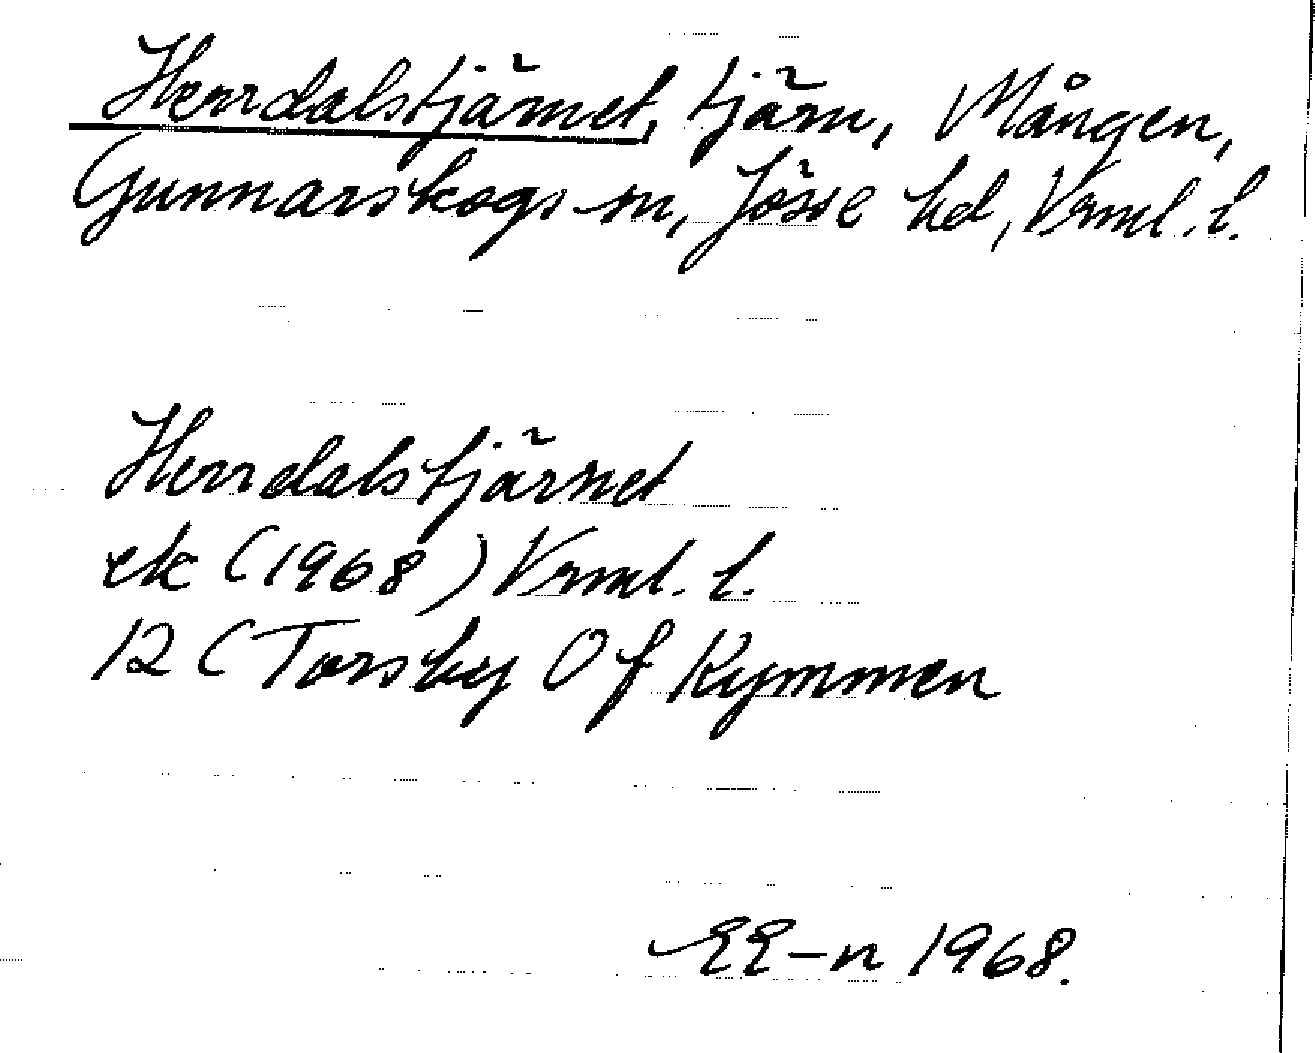 Herrdalstjärnet, tjärn, Mången,
Gunnarskogs sn, Jösse hd, Vrml. l.
Herrdalstjärnet
ek (1968) Vrml. l.
12 C Torsby 0 f Kymmen
EE-n 1968.